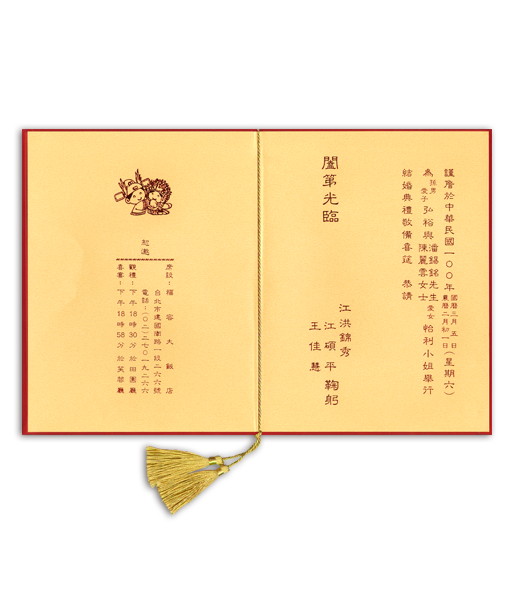 謹詹於中華民國一００年國曆三月五日農曆二月初一日(星期六)
為孫男愛子弘裕與潘錦銘先生陳麗雲女士愛女怡利小姐舉行
結婚典禮敬備喜筵 恭請
闔第光臨
江洪錦秀
江碩平 鞠躬
王佳慧
恕邀
席設：福容大飯店
台北市建國南路一段二六六號
電話：(０二)二七０一九二六六
觀禮：下午18時30分於田園廳
喜宴：下午18時58分於芙蓉廳